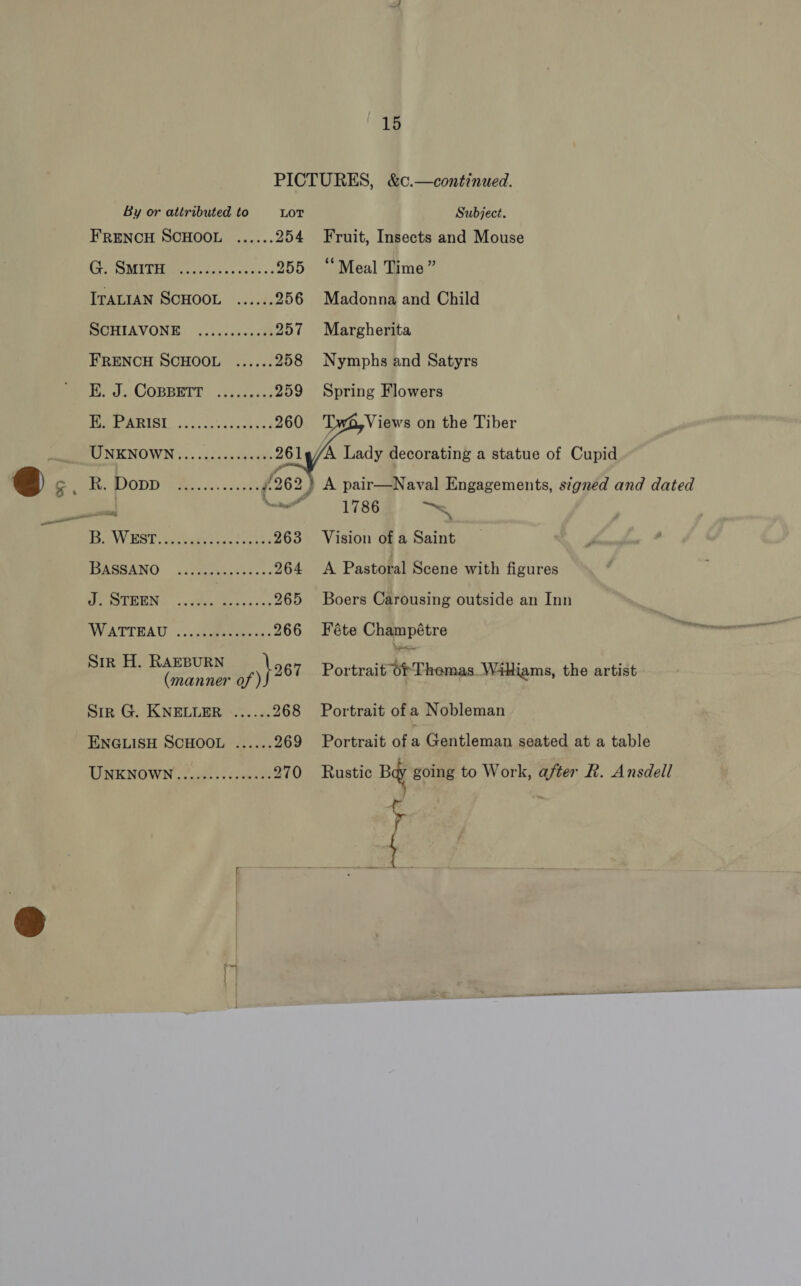 15
PICTURES, &c.—continued.
By or attributed to LOT Subject.
FRENCH SCHOOL ......254 Fruit, Insects and Mouse
G. SMITH ..............255 “Meal Time”
ITALIAN SCHOOL ......256 Madonna and Child
SCHIAVONE ............257 Margherita
FRENCH SCHOOL ......258 Nymphs and Satyrs
E. J. COBBETT .........259 Spring Flowers
E. PARISI ...............260 Two Views on the Tiber
UNKNOWN...............261 A Lady decorating a statue of Cupid
R. DODD ...............262 A pair—Naval Engagements, signed and dated
1786
B. WEST..................263 Vision of a Saint
BASSANO ...............264 A Pastoral Scene with figures
J. STEEN ...............265 Boers Carousing outside an Inn
WATTEAU ...............266 Féte Champétre
SIR H. RAEBURN (manner of) } 267 Portrait of Thomas Williams, the artist
SIR G. KNELLER ......268 Portrait of a Nobleman
ENGLISH SCHOOL ......269 Portrait of a Gentleman seated at a table
UNKNOWN...............270 Rustic Boy going to Work, after R. Ansdell